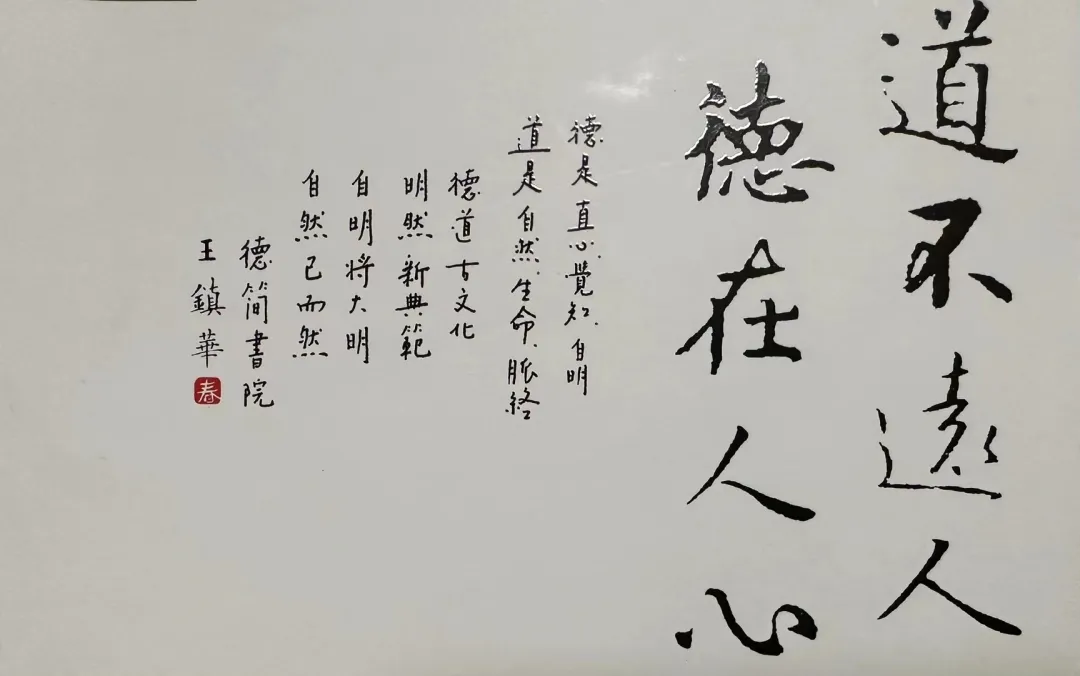 道不遠人
德在人心
德是直心、覺知、自明
道是自然、生命、脈絡
德道古文化
明然新典範
自明將大明
自然已而然
德簡書院
王鎮華
春